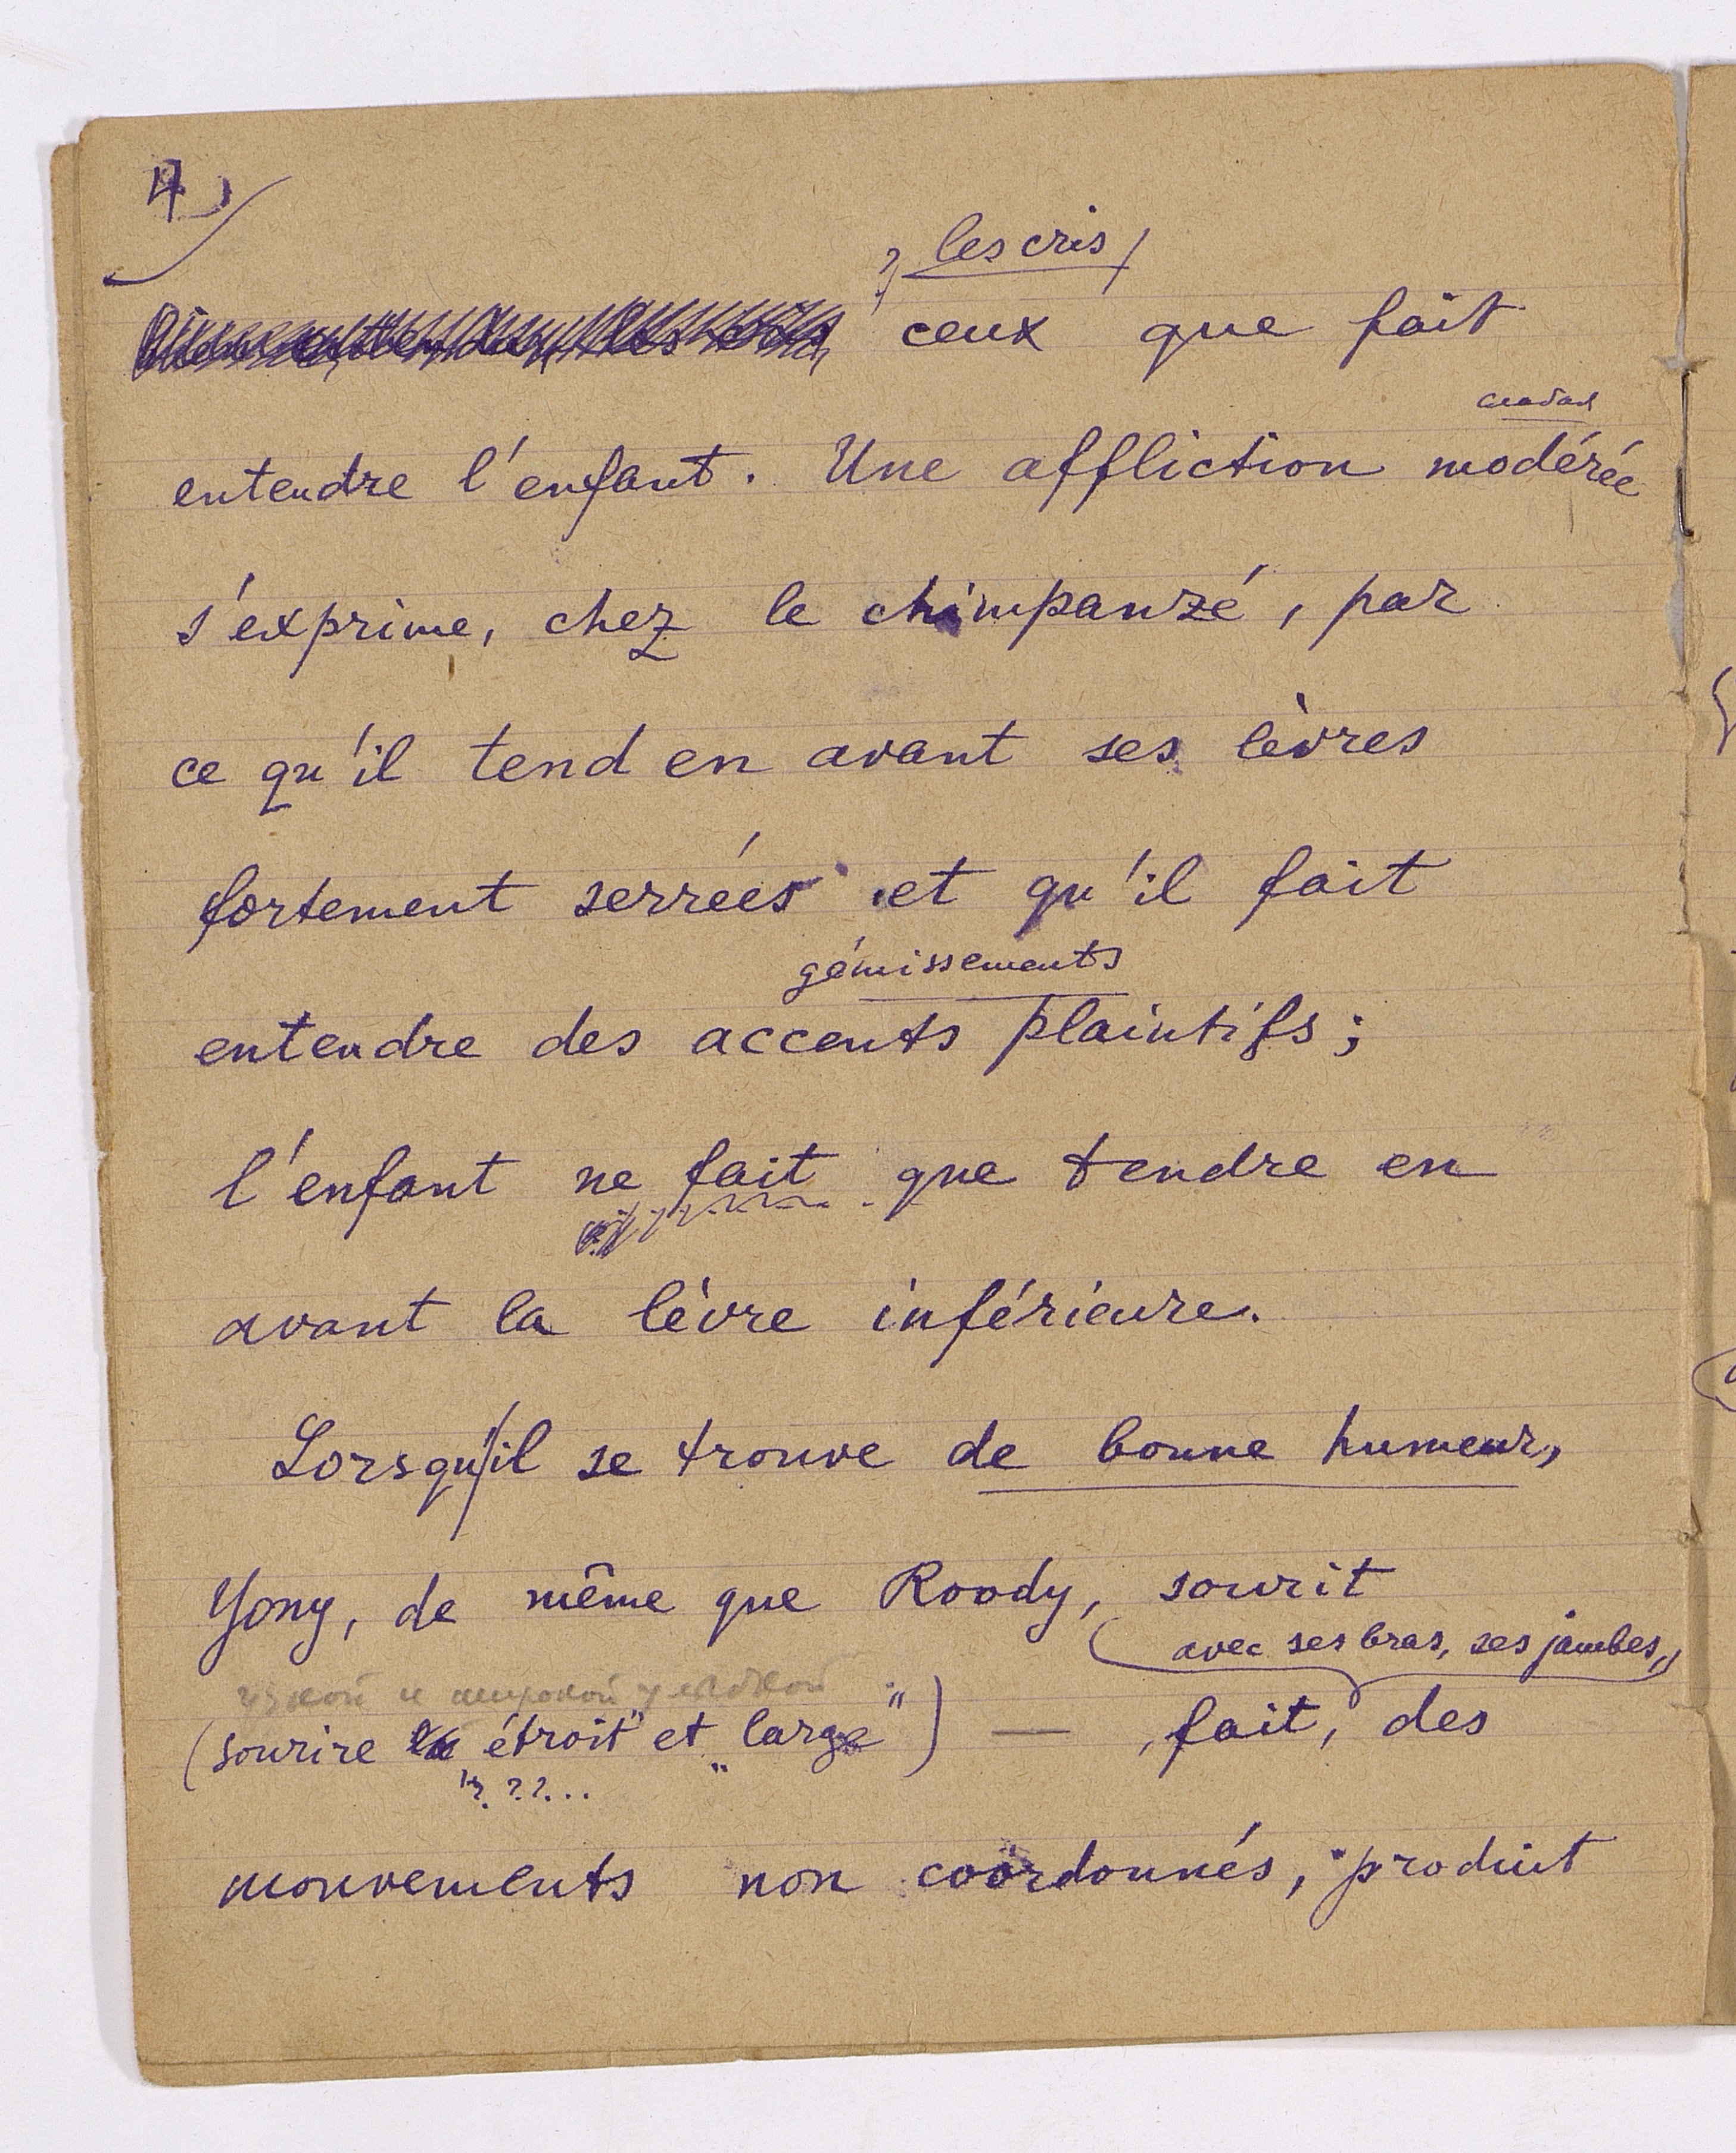 4)
les cris
ceux que fait
слабая
entendre l'enfant. Une affliction modérée
s'exprime, chez le chimpanzé, par
ce qu'il tend en avant ses lèvres
fortement serrées et qu'il fait
gémissements
entendre des accents plaintifs;
l'enfant ne fait que tendre en
avant la lèvre inférieure.
Lorsqu'il se trouve de bonne humeur,
Yony, de même que Roody, sourit
avec ses bras, ses jambes,
узкой и широкой улыбкой
(sourire „étroit" et „large") — fait, des
??...
mouvements non coordonnés, produit